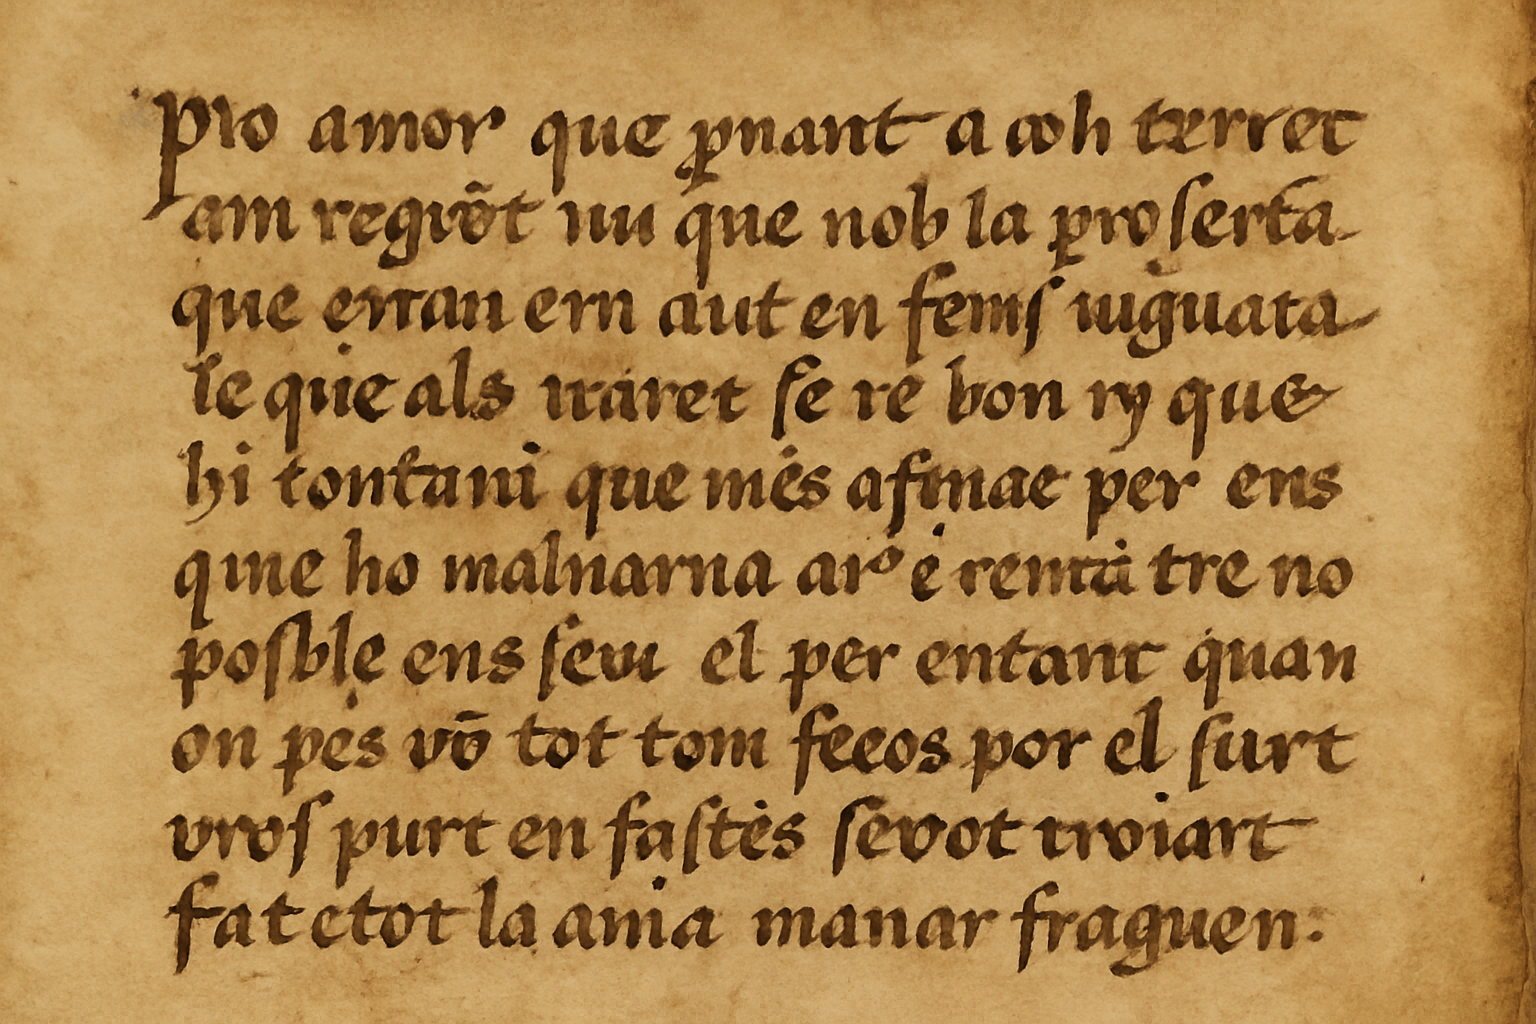 pro amor que ꝑnant a coh terret
am regiõt uu que nob la ꝓo ſerta
que erran ern aut en femſ uiguata
le que als uraret ſe re bon ry que
hi tontani que més afmae per ens
qine ho malnarna arº é remtá tre no
poſble ens ſeui el per entant quan
on pés vō tot tom feeos por el ſurt
vroſ purt en faſtės ſevot troiart
fat etot la ania manar fraguen: